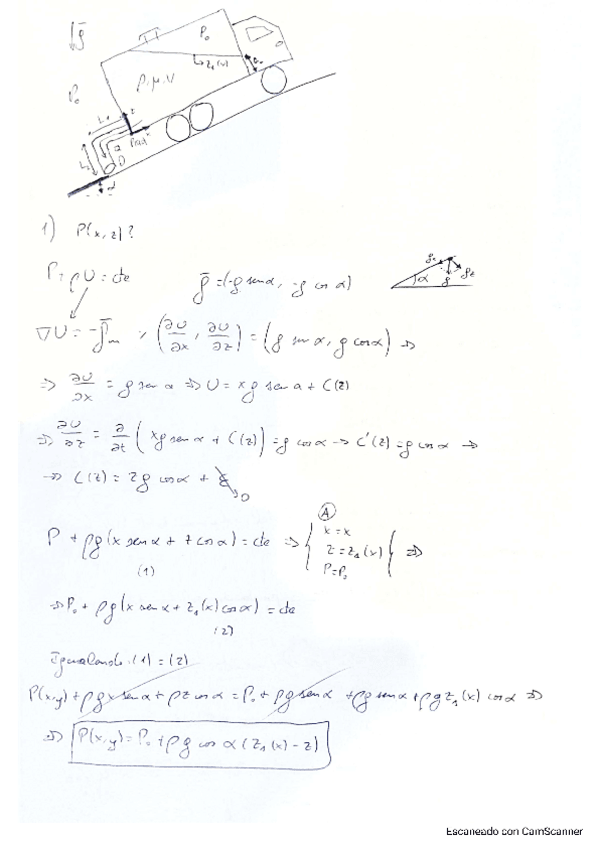 ḡ
P₀
P₀
z₁(x)
ρ, μ, V
L₂
D
1) P(x,z)?
P+ρU = cte     ḡ = (-g sen α, -g cos α)
α
∇U = -f̄m, (∂U/∂x, ∂U/∂z) = (g sen α, g cos α) ⇒
⇒ ∂U/∂x = g sen α ⇒ U = xg sen α + C(z)
⇒ ∂U/∂z = ∂/∂t (xg sen α + C(z)) = g cos α → C'(z) = g cos α ⇒
→ C(z) = zg cos α + 0
P + ρg(x sen α + z cos α) = cte ⇒ { (A) x = x, z = z₁(x), P = P₀ } ⇒
(1)
⇒ P₀ + ρg(x sen α + z₁(x) cos α) = cte
(2)
Igualando (1) = (2)
P(x,y) + ρgx sen α + ρz cos α = P₀ + ρg sen α + ρg sen α + ρg z₁(x) cos α ⇒
⇒ P(x,y) = P₀ + ρg cos α (z₁(x) - z)
Escaneado con CamScanner